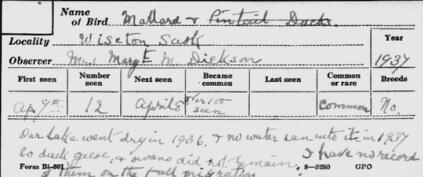 Name of Bird Mallard & Pintail Ducks.
Locality Wiseton Sask
Observer Mrs Mary E. M. Dickson
Year 1937
First seen Number seen Next seen Became common Last seen Common or rare Breeds
Ap. 7th 12 April 8 over 100 seen Common No.
Our Lake went dry in 1936. & no water ran into it in 1937
So duck geese, & swans did not remain. I have no record
of them on the fall migration
Form Bi-801 8-5280 GPO